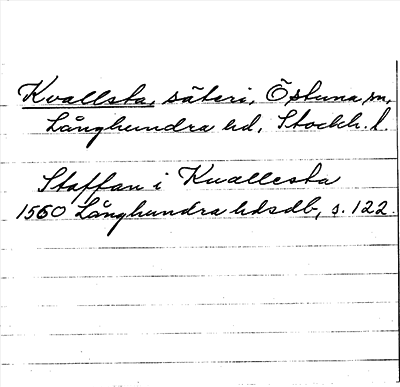 Kvallsta, säteri, Östuna sn,
Långhundra hd, Stockh. l.
Staffan i Kuallesta
1560 Långhundra hdsdb, s. 122.